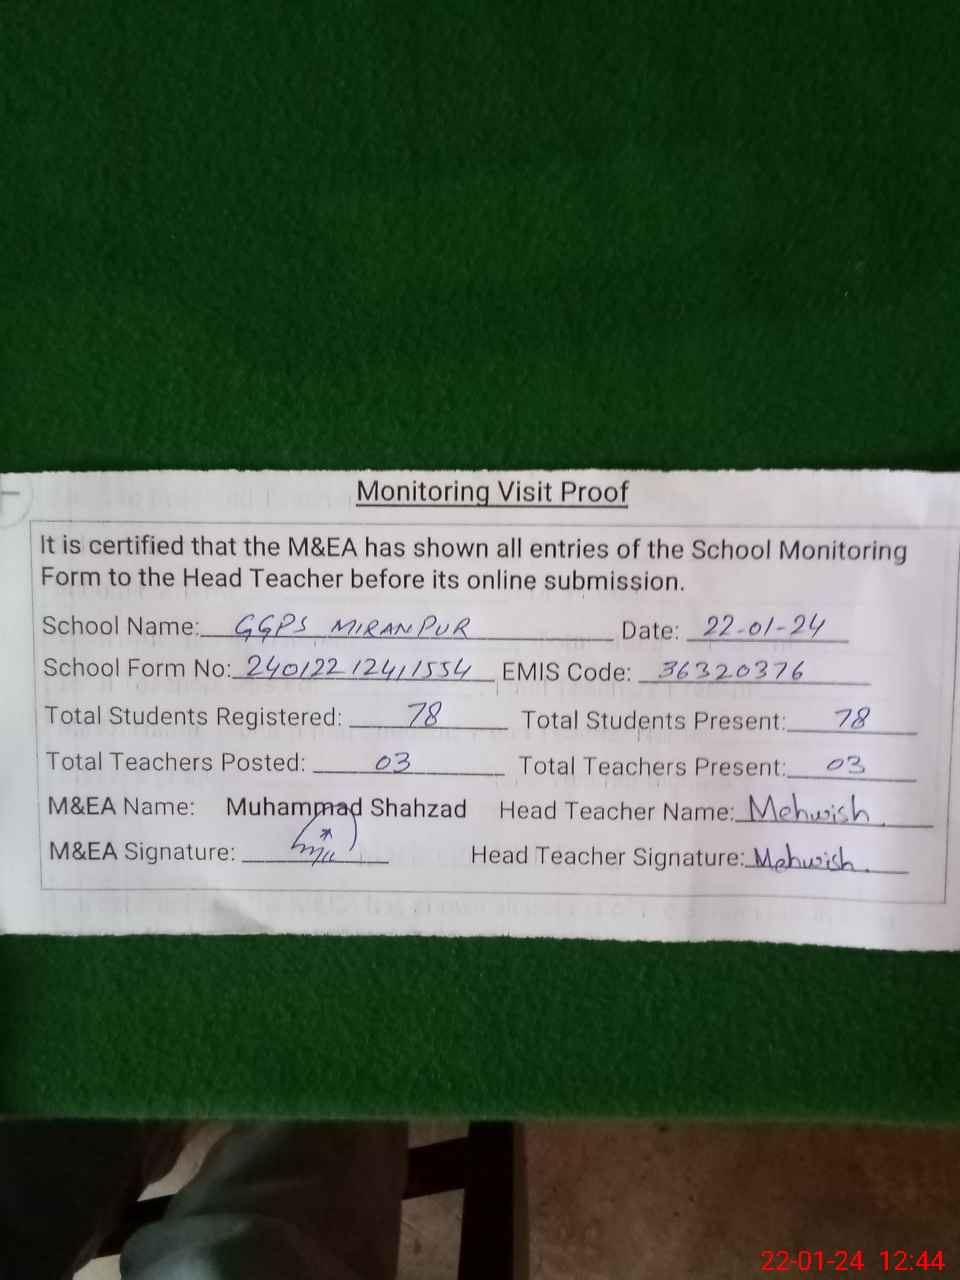 Monitoring Visit Proof
It is certified that the M&EA has shown all entries of the School Monitoring
Form to the Head Teacher before its online submission.
School Name: GGPS MIRANPUR Date: 22-01-24
School Form No: 24012212411554 EMIS Code: 36320376
Total Students Registered: 78 Total Students Present: 78
Total Teachers Posted: 03 Total Teachers Present: 03
M&EA Name: Muhammad Shahzad Head Teacher Name: Mehwish
M&EA Signature: Head Teacher Signature: Mehwish.
22-01-24 12:44